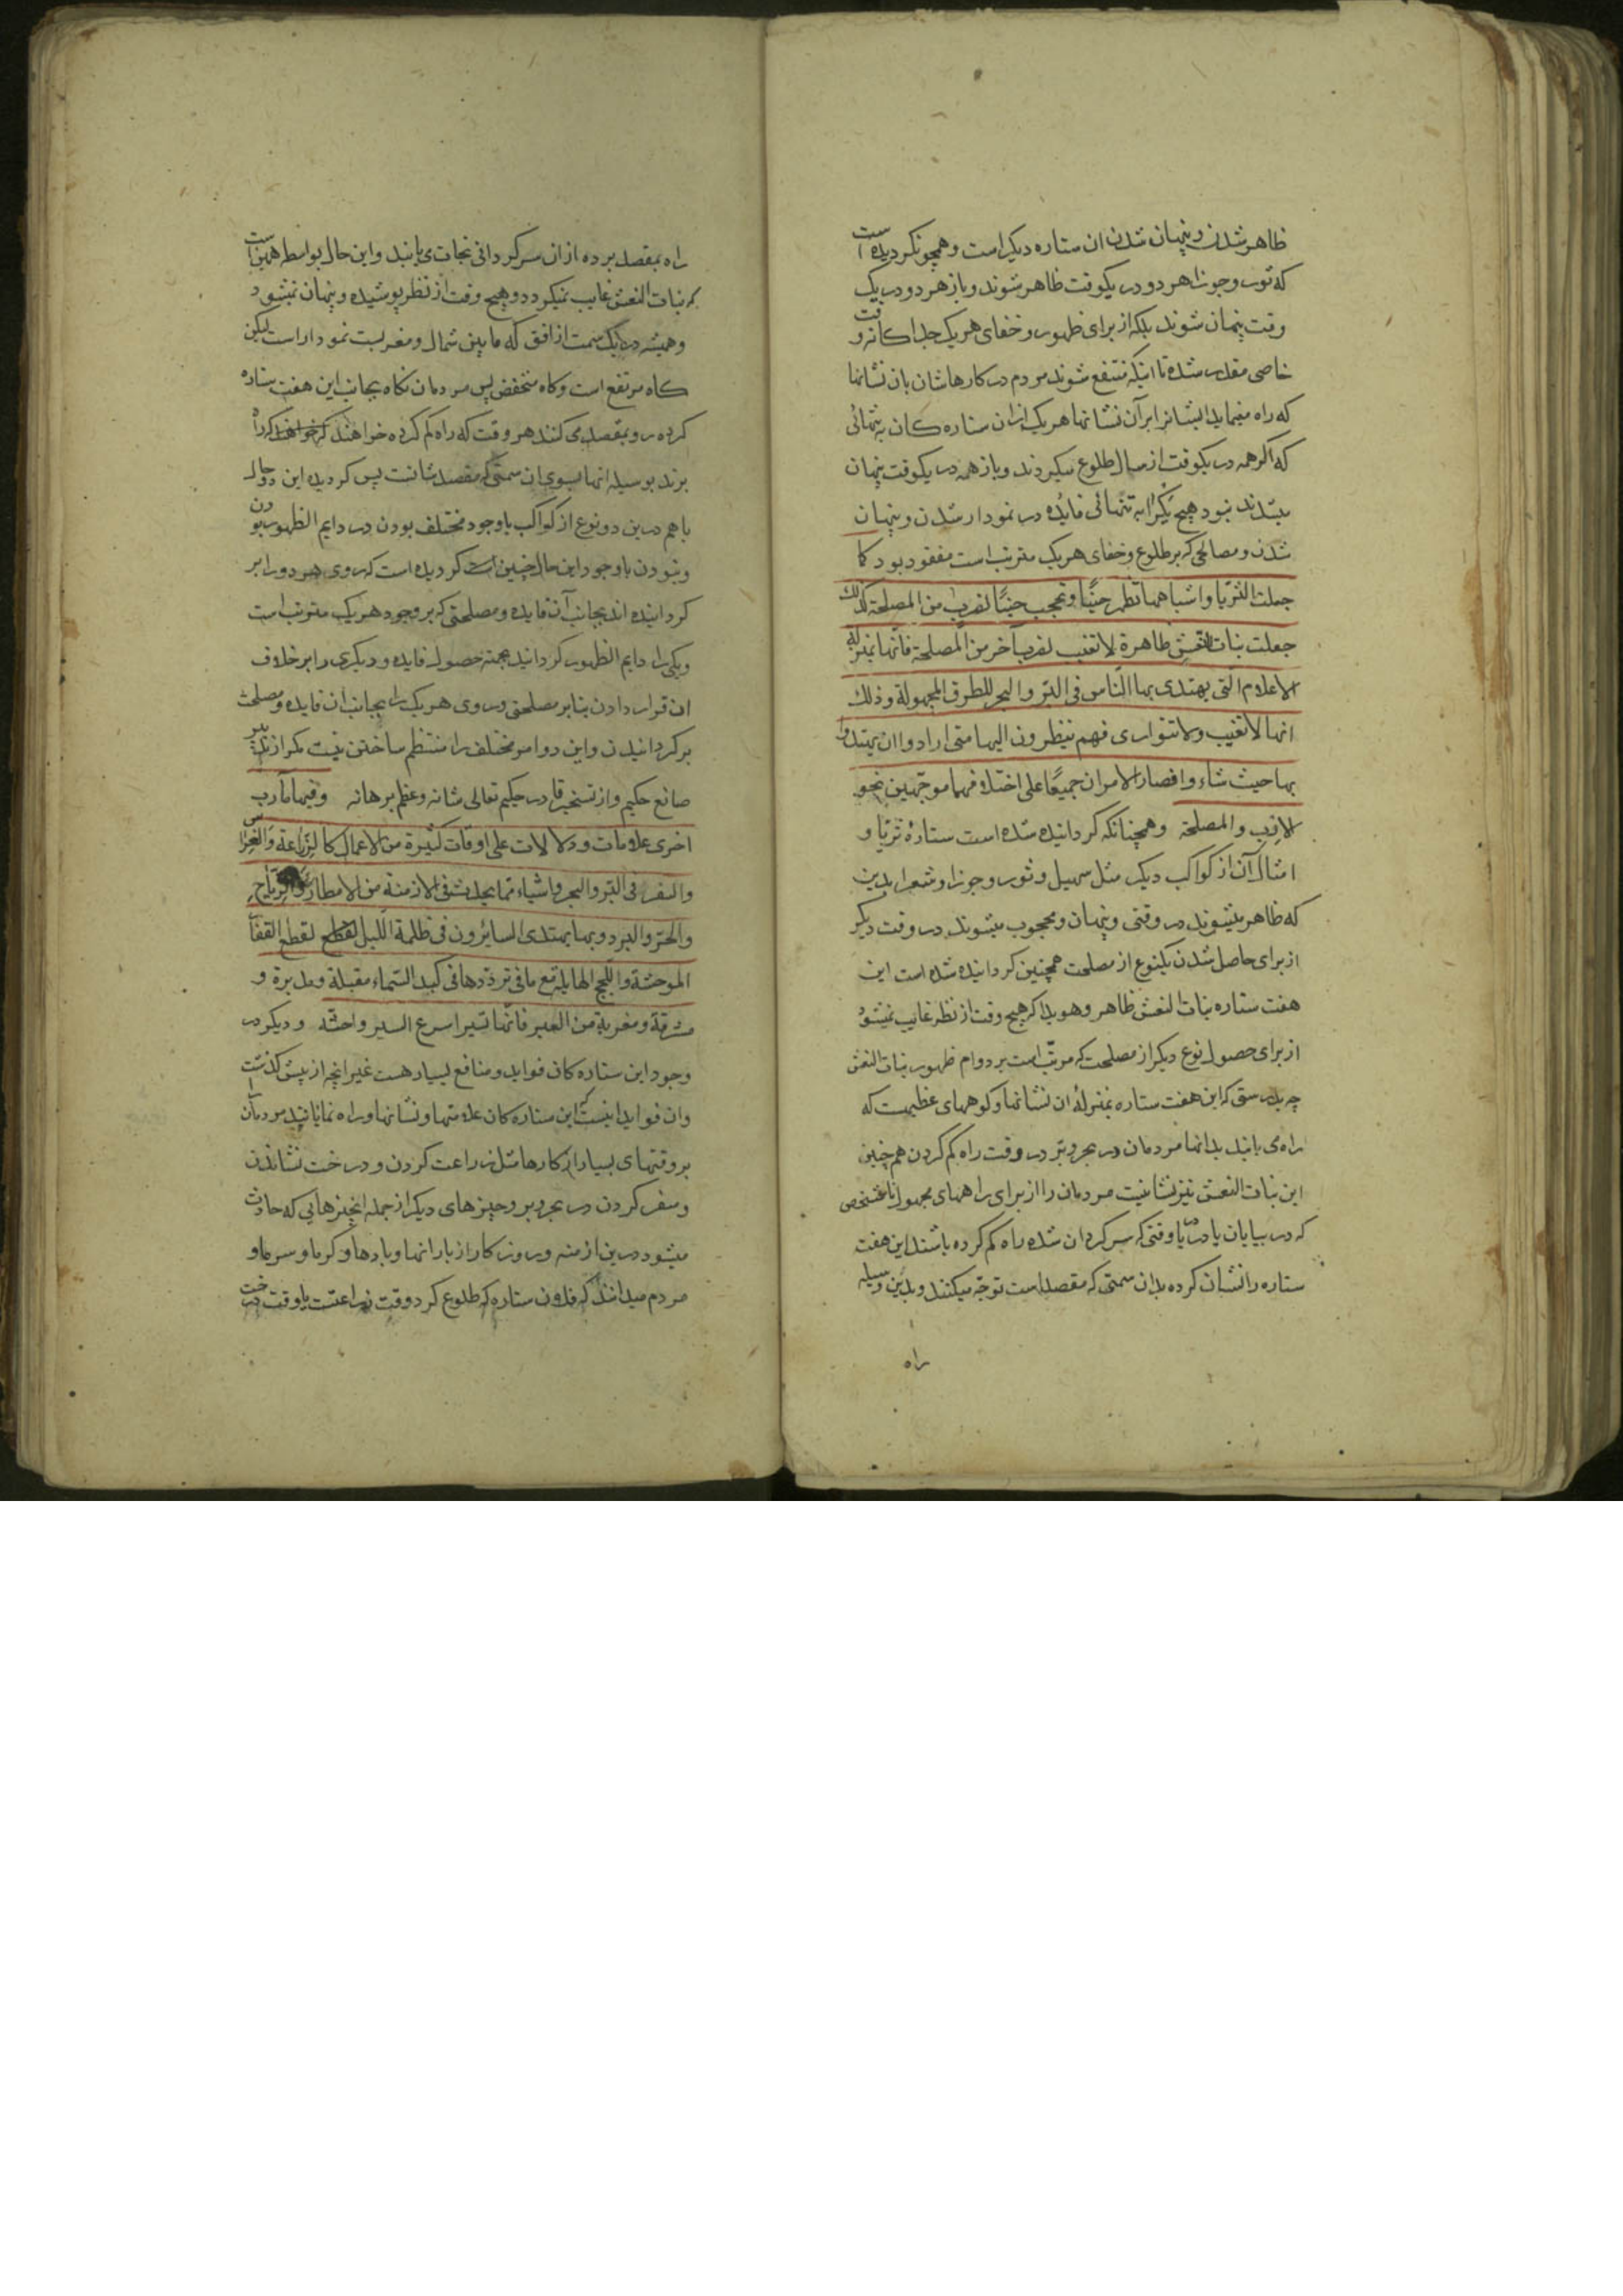 ظاهر شدن و پنهان شدن ان ستاره دیگر است و همچو نکردیده است
که ثور و جوزا هر دو در یکوقت ظاهر شوند و باز هر دو در یک
وقت پنهان شوند بلکه از برای ظهور و خفای هر یک جدا کانه وقت و
خاصی مقدر شده تا اینکه منتفع شوند مردم در کارهاشان بان نشانها
که راه مینماید ایشانرا بر آن نشانها هر یک ازان ستاره کان به تنهائی
که اکر همه در یکوقت از سال طلوع میکردند و باز همه در یکوقت پنهان
میشدند نبود هیچ یکرا به تنهائی فایده در نمودار شدن و پنهان
شدن و مصالحی که بر طلوع و خفای هر یک مترتب است مفقود بود کما
جعلت الثریا و اشباهها تظهر حینًا و تحجب حینًا لضرب من المصلحة کذلک
جعلت بنات النعش ظاهرة لا تغیب لضرب آخر من المصلحة فانها بمنزلة
الاعلام التی یهتدی بها الناس فی البر و البحر للطرق المجهولة و ذلک
انها لا تغیب و لا تتواری فهم ینظرون الیها متی ارادوا ان یهتدوا
بها حیث شاء و افصار الامران جمیعًا علی اختلافهما موجهین نحو
الارب والمصلحة و همچنانکه کردانیده شده است ستارهٔ ثریا و
امثال آن از کواکب دیگر مثل سهیل و ثور و جوزا و شعرا بدین
که ظاهر میشوند در وقتی و پنهان و محجوب میشوند در وقت دیگر
از برای حاصل شدن یکنوع از مصلحت همچنین کردانیده شده است این
هفت ستاره بنات النعش ظاهر و هویدا که هیچ وقت از نظر غایب نمیشود
از برای حصول نوع دیگر از مصلحت که مرتب است بر دوام ظهور بنات النعش
چه بدرستی که این هفت ستاره بمنزلهٔ ان نشانها و کوههای عظیمست که
راه می یابند بدانها مردمان در بحر و بر در وقت راه کم کردن همچنین
این بنات النعش نیز نشانیست مردمان را از برای راههای مجهول نامشخص
که در بیابان یا دریا وقتی که سرکردان شده راه کم کرده باشند این هفت
ستاره را نشان کرده بدان سمتی که مقصد است توجه میکنند و بدین وسیله
راه
راه بمقصد برده ازان سرکردانی نجات می یابند و این حال بواسطه همین است
که بنات النعش غایب نمیکردد و هیچ وقت از نظر پوشیده و پنهان نمیشود
و همیشه در یک سمت از افق که مابین شمال و مغربست نمودار است لیکن
کاه مرتفع است و کاه منخفض پس مردمان نکاه بجانب این هفت ستاره
کرده رو بمقصد می کنند هر وقت که راه کم کرده خواهند که راه
برند بوسیله انها بسوی ان سمتی که مقصد شانست پس کردیده این دو حال
باهم درین دو نوع از کواکب باوجود مختلف بودن در دایم الظهور بودن
و نبودن باوجود این حال چنین کردیده است که روی هر دو را بر
کردانیده اند بجانب آن فایده و مصلحتی که بر وجود هر یک مترتب است
و یکی را دایم الظهور کردانید بجهة حصول فایده و دیگری را بر خلاف
ان قرار دادن بنابر مصلحتی و روی هر یک را بجانب ان فایده و مصلحت
بر کردانیدن و این دو امر مختلف را منتظم ساختن نیست مکر از تدبیر
صانع حکیم و از تسخیر قادر حکیم تعالی شانه و عظم برهانه و فیها مارب
اخری علامات و دلالات علی اوقات کثیرة من الاعمال کالزراعة و الغراس
و السفر فی البر و البحر و اشیاء مما یحدث فی الازمنة من الامطار و الریاح
و الحر و البرد و بها یهتدی السائرون فی ظلمة اللیل لقطع القفار
الموحشة و اللجج الهایلة مع ما فی ترددها فی کبد السماء مقبلة و مدبرة و
مشرقة و مغربة من العبر فانها تسیر اسرع السیر و احثه و دیگر در
وجود این ستاره کان فواید و منافع بسیار هست غیر انچه از پیش کذشت
وان فواید اینست که این ستاره کان علامتها و نشانها و راه نمایانند مردمان را
بر وقتهای بسیار از کارها مثل زراعت کردن و درخت نشاندن
و سفر کردن در بحر و بر و چیزهای دیگر از جمله انچیزهایی که حادث
میشود درین ازمنه و روزکار از بارانها و بادها و کرما و سرما و
مردم میدانند که فلان ستاره که طلوع کرد وقت زراعتست یا وقت درخت